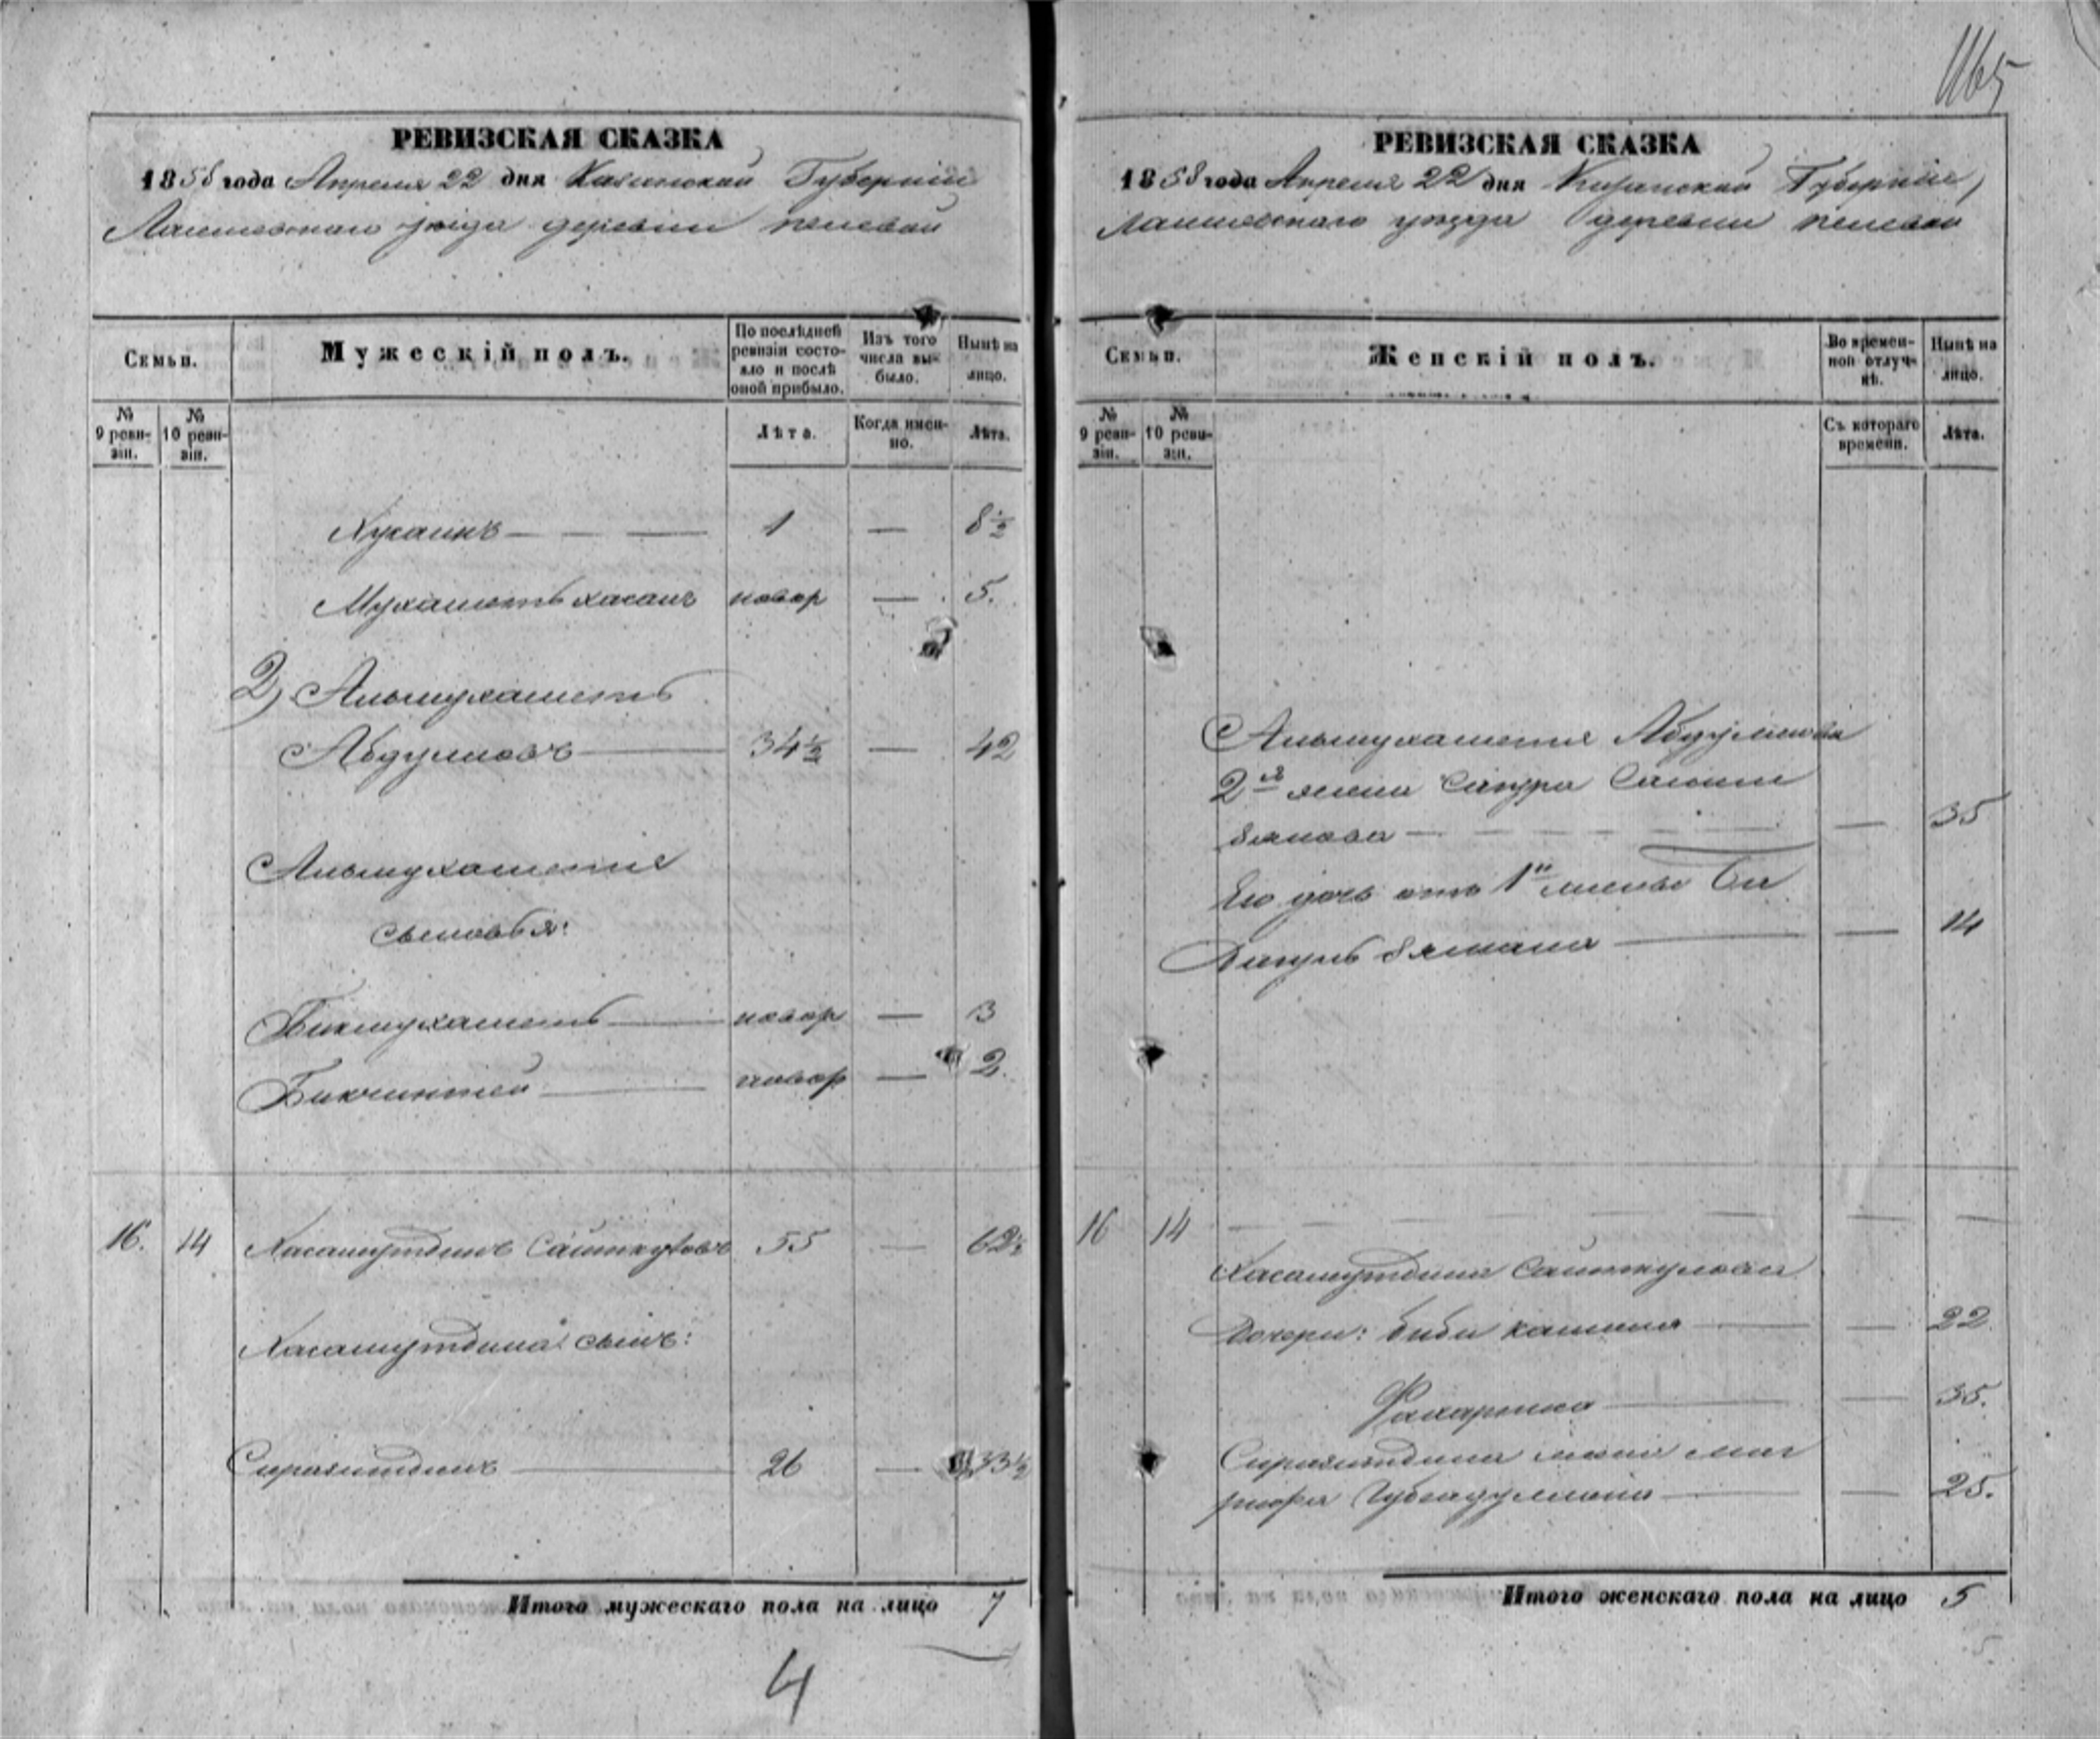 1165
РЕВИЗСКАЯ СКАЗКА
1858 года Апреля 22 дня Казанской Губернии
Лаишевскаго уѣзда деревни
Семьи.
Мужескій полъ.
По послѣдней ревизіи состояло и послѣ оной прибыло.
Изъ того числа выбыло.
Нынѣ на лицо.
№ 9 ревизіи.
№ 10 ревизіи.
Лѣта.
Когда именно.
Лѣта.
Хусаинъ — 1 — 8½
Мухаметь хасанъ новор — 5.
2) Альмухаметь
Абдуловъ — 34½ — 42
Альмухаметя
сыновья:
Бикмухаметь — новор — 3
Бикчинтей — новор — 2.
16. 14 Хасамутдинъ Сайткуловъ 55 — 62½
Хасамутдина сынъ:
Сиразитдинъ — 26 — 33½
Итого мужескаго пола на лицо 7
4
РЕВИЗСКАЯ СКАЗКА
1858 года Апреля 22 дня Казанской Губернии,
Лаишевскаго уѣзда деревни
Семьи.
Женскій полъ.
Во временной отлучкѣ.
Нынѣ на лицо.
№ 9 ревизіи.
№ 10 ревизіи.
Съ котораго времени.
Лѣта.
Альмухаметя Абдулова
2я жена
— — 35
Его дочь отъ 1й жены Би
— — 14
16 14 — — —
Хасамутдина Сайткулова
Дочери: биби — — 22
— — 35.
Сиразитдина жена
Губайдуллина — — 25.
Итого женскаго пола на лицо 5